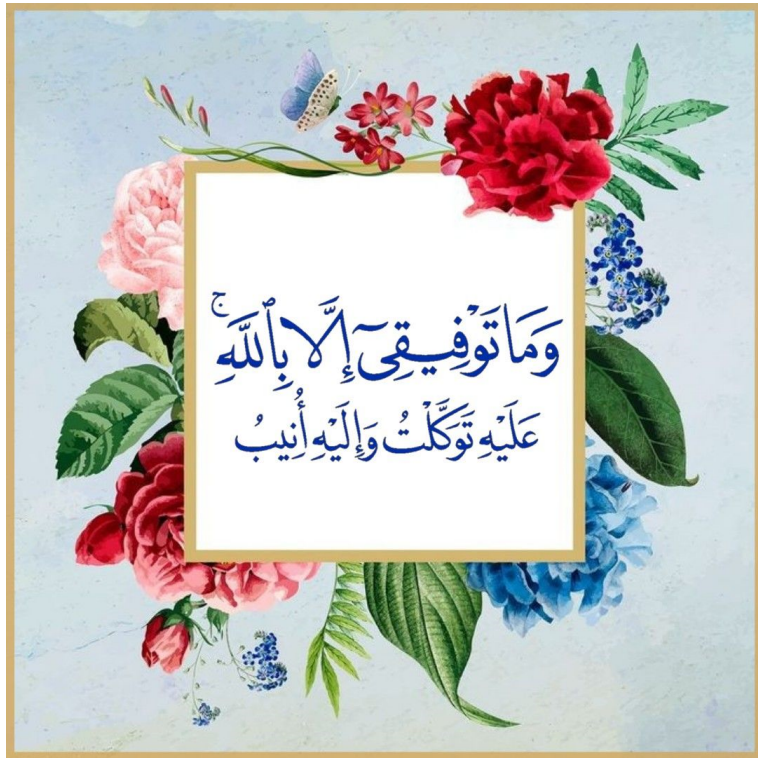 وَمَا تَوْفِيقِىٓ إِلَّا بِٱللَّهِ ۚ
عَلَيْهِ تَوَكَّلْتُ وَإِلَيْهِ أُنِيبُ